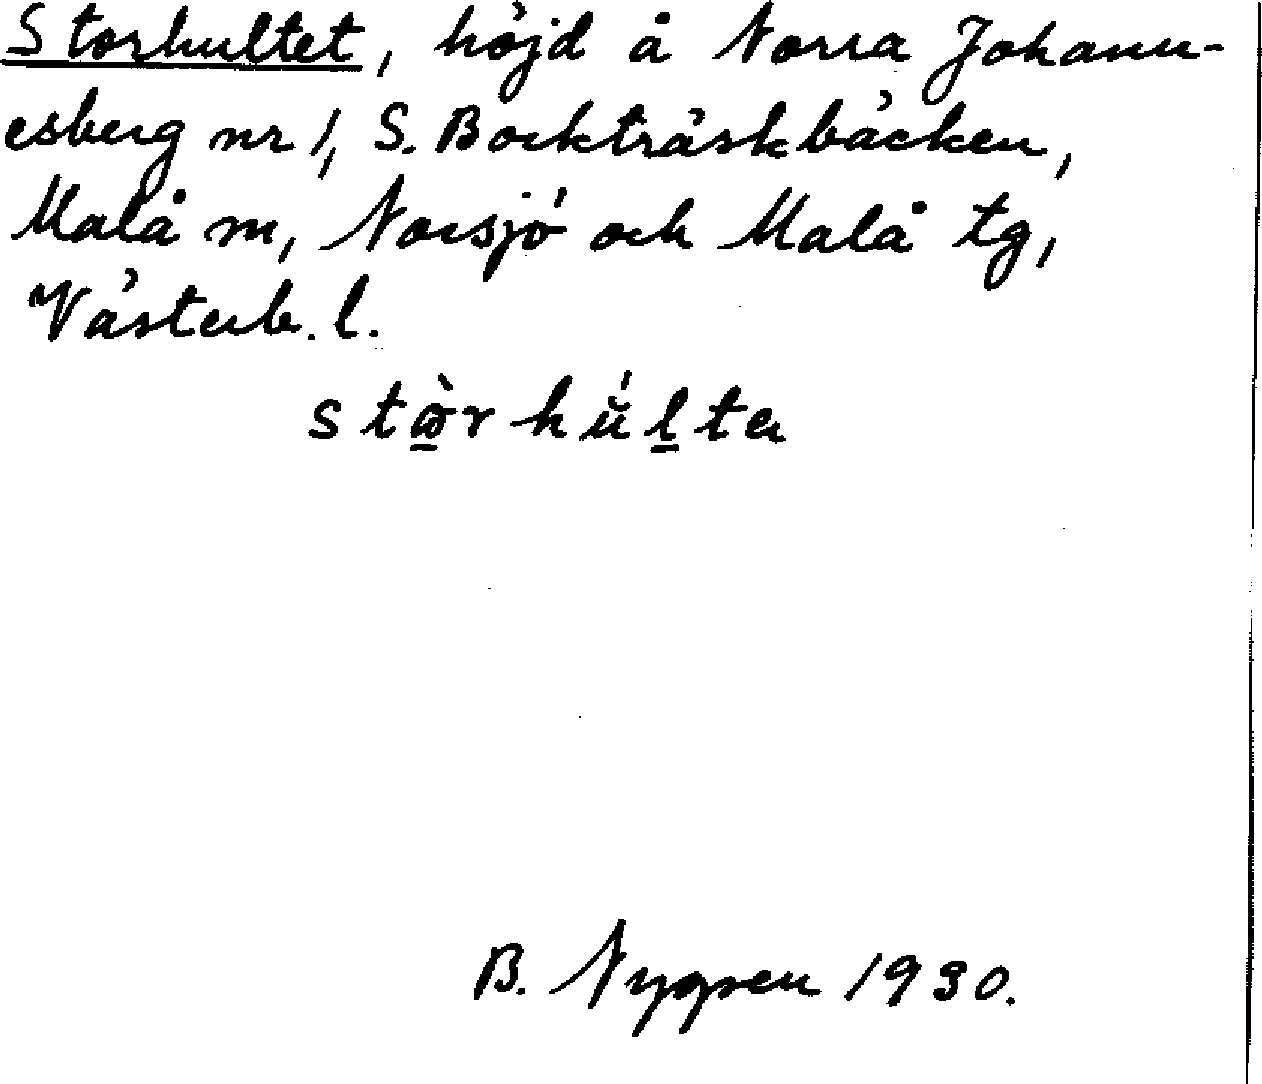 Storhultet, höjd å Norra Johann-
esberg nr 1, S. Bockträskbäcken,
Malå sn, Norsjö och Malå tg,
Västerb. l.
stòrhú̆lta
B. Nygren 1930.